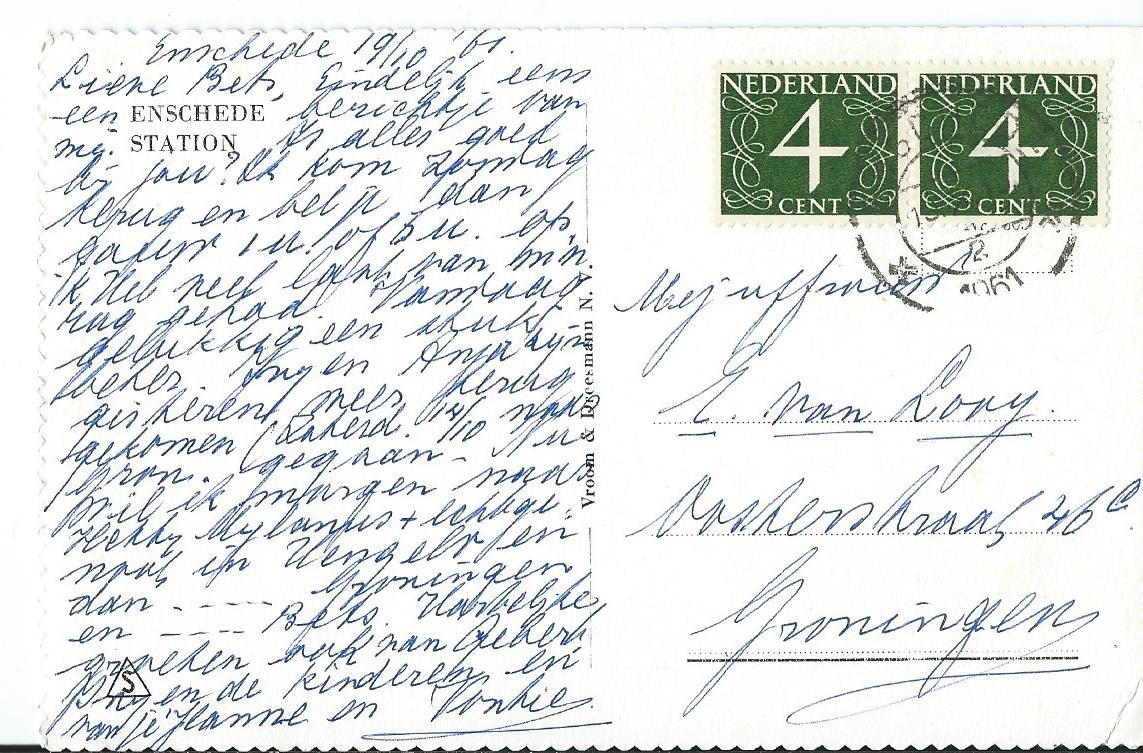 Enschede 19/10 '61.
Lieve Bets, Eindelijk eens
een berichtje van
mij. Is alles goed
bij jou? Ik kom Zondag
terug en bel je dan
1 u. of 5 u. op.
Ik heb veel last van m'n
rug gehad. Vandaag
gelukkig een stuk
beter. Iny en Anja zijn
gisteren weer terug
gekomen (Zaterd. 14/10 naar
Gron. gegaan. Nu
wil ik morgen naar
Mylanus + echtge-
noot in Hengelo en
dan ---- Groningen
en ---- Bets. Hartelijke
groeten ook van
Iny en de kinderen en
van je Hanne en
ENSCHEDE
STATION
Vroom & Dreesmann N.V.
S
NEDERLAND NEDERLAND
4 4
CENT CENT
2
1961
Mejuffrouw
E. van Looy.
Oosterstraat 46a
Groningen